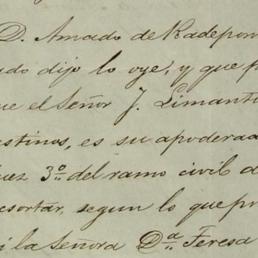 D. Amado de
ado dijo lo oye, y que p
ue el Señor J. Limant
estinos, es su apoderad
uez 3º del ramo civil d
esortar, segun lo que po
i la Señora Dª Teresa